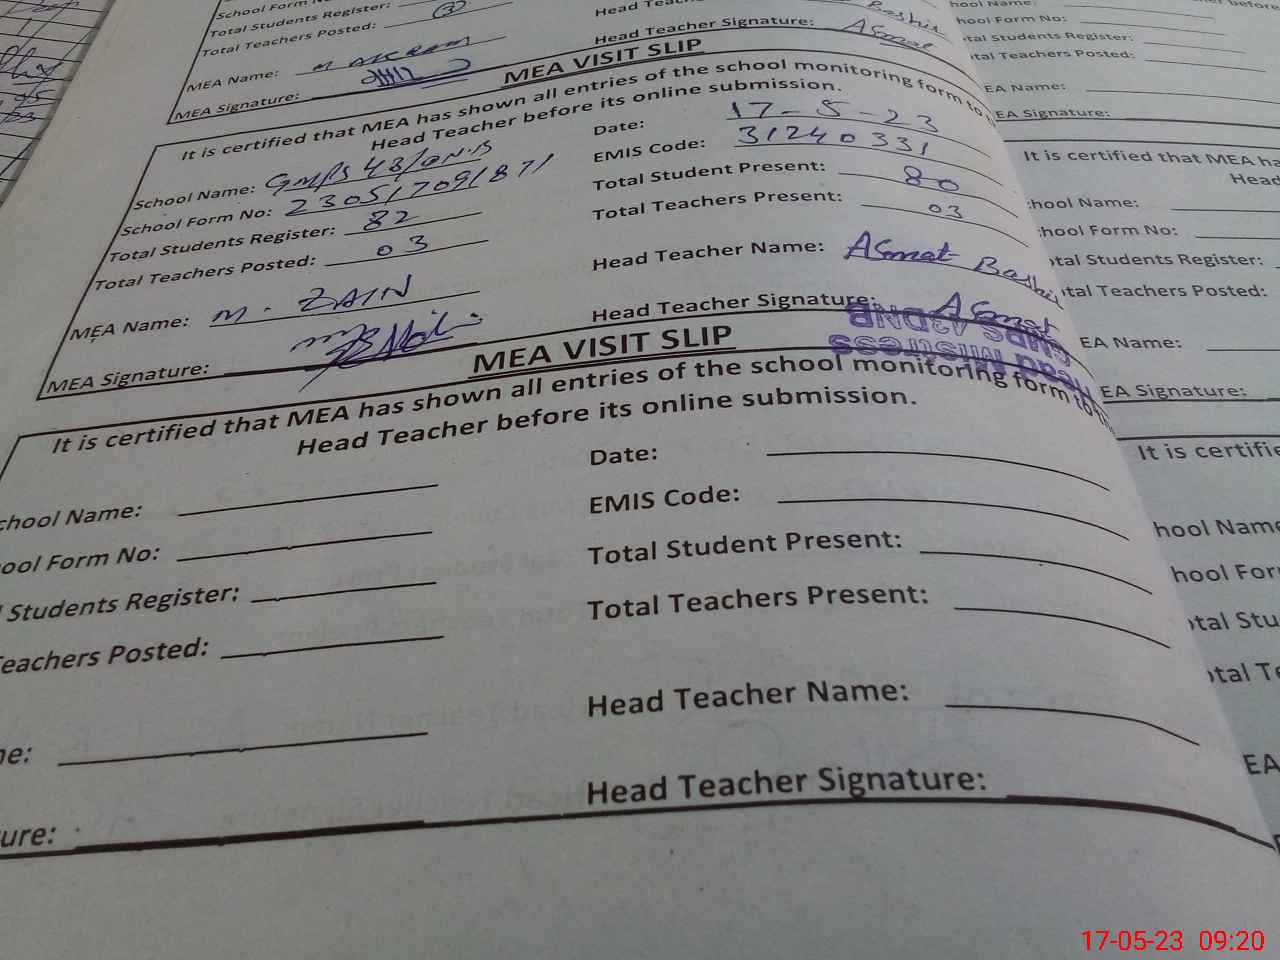 School Form N
Total Students Register:
Total Teachers Posted: 3
Head Teacher Bashir
Head Teacher Signature: Asmat
MEA Name: M AKRAM
MEA Signature:
MEA VISIT SLIP
It is certified that MEA has shown all entries of the school monitoring form to
Head Teacher before its online submission.
Date: 17-5-23
School Name: GMPS 48/
EMIS Code: 31240331
School Form No: 230517091871
Total Student Present: 80
Total Students Register: 82
Total Teachers Present: 03
Total Teachers Posted: 03
Head Teacher Name: Asmat Bashir
MEA Name: M. ZAIN
Head Teacher Signature: Asmat
MEA Signature:
Head Mistress
MEA VISIT SLIP
It is certified that MEA has shown all entries of the school monitoring form to
Head Teacher before its online submission.
Date:
chool Name:
EMIS Code:
ool Form No:
Total Student Present:
l Students Register:
Total Teachers Present:
Teachers Posted:
Head Teacher Name:
e:
Head Teacher Signature:
ure:
hool Name:
before
hool Form No:
tal Students Register:
tal Teachers Posted:
EA Name:
EA Signature:
It is certified that MEA ha
Head
hool Name:
hool Form No:
tal Students Register:
tal Teachers Posted:
EA Name:
EA Signature:
It is certifie
hool Name
hool For
tal Stu
tal Te
EA
17-05-23 09:20